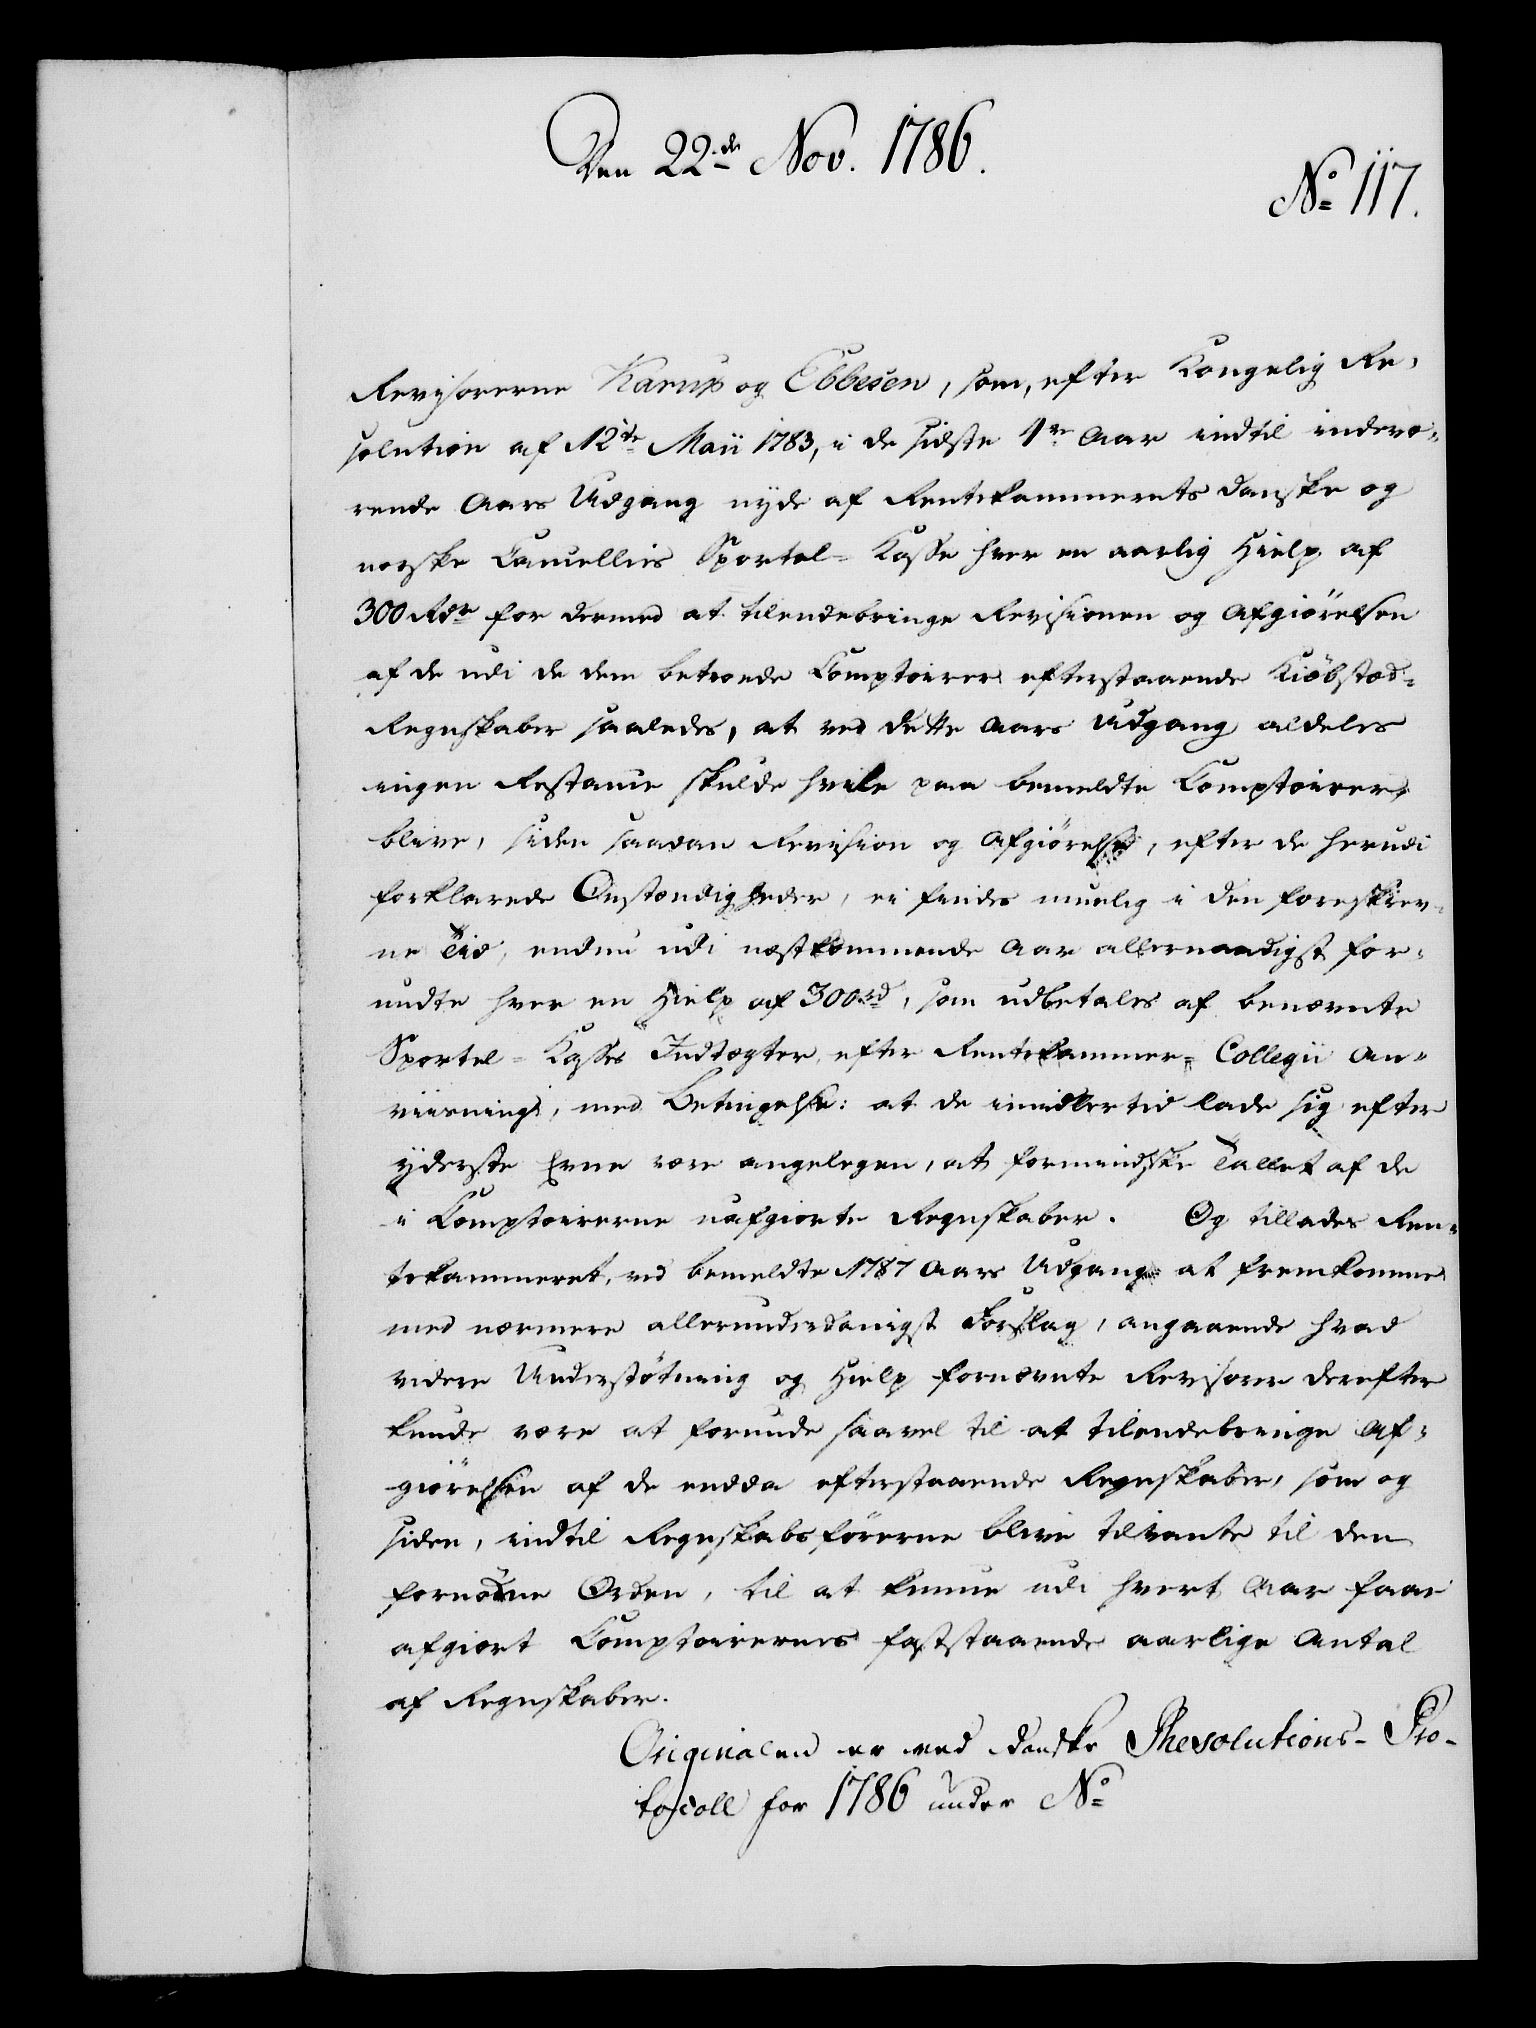 Den 22de Nov. 1786.
No 117.
Revisorerne Karup og Ebbesen, som, efter Kongelig Re-
solution af 12te Maii 1783, i de sidste 4re Aar indtil indevæ-
rende Aars Udgang nyde af Rentekammerets danske og
norske Cancellies Sportel-Kasse hver en aarlig Hielp af
300 Rdr for dermed at tilendebringe Revisionen og Afgiörelsen
af de udi de dem betroede Comptoirer efterstaaende Kiöbstæd-
Regnskaber saaledes, at ved dette Aars Udgang aldeles
ingen Restance skulde hvile paa bemeldte Comptoirer,
blive, siden saadan Revision og Afgiörelse, efter de herudi
forklarede Omstændigheder, ei findes muelig i den foreskrev-
ne Tid, endnu udi næstkommende Aar allernaadigst for-
undte hver en Hielp af 300 rd, som udbetales af benævnte
Sportel-Kasses Indtægter efter Rentekammer-Collegii An-
viisning, med Betingelse: at de imidlertid lade sig efter
yderste Evne være angelegen, at formindske Tallet af de
i Comptoirerne uafgiorte Regnskaber. Og tillades Ren-
tekammeret, ved bemeldte 1787 Aars Udgang at fremkomme
med nærmere allerunderdanigst Forslag, angaaende hvad
videre Understøtning og Hielp fornævnte Revisorer derefter
kunde være at forunde saavel til at tilendebringe Af-
giörelsen af de endda efterstaaende Regnskaber, som og
siden, indtil Regnskabsförerne blive tilvante til den
fornödne Orden, til at kunne udi hvert Aar faae
afgiort Comptoirernes faststaaende aarlige Antal
af Regnskaber.
Originalen er ved danske Resolutions-Pro-
tocoll for 1786 under No